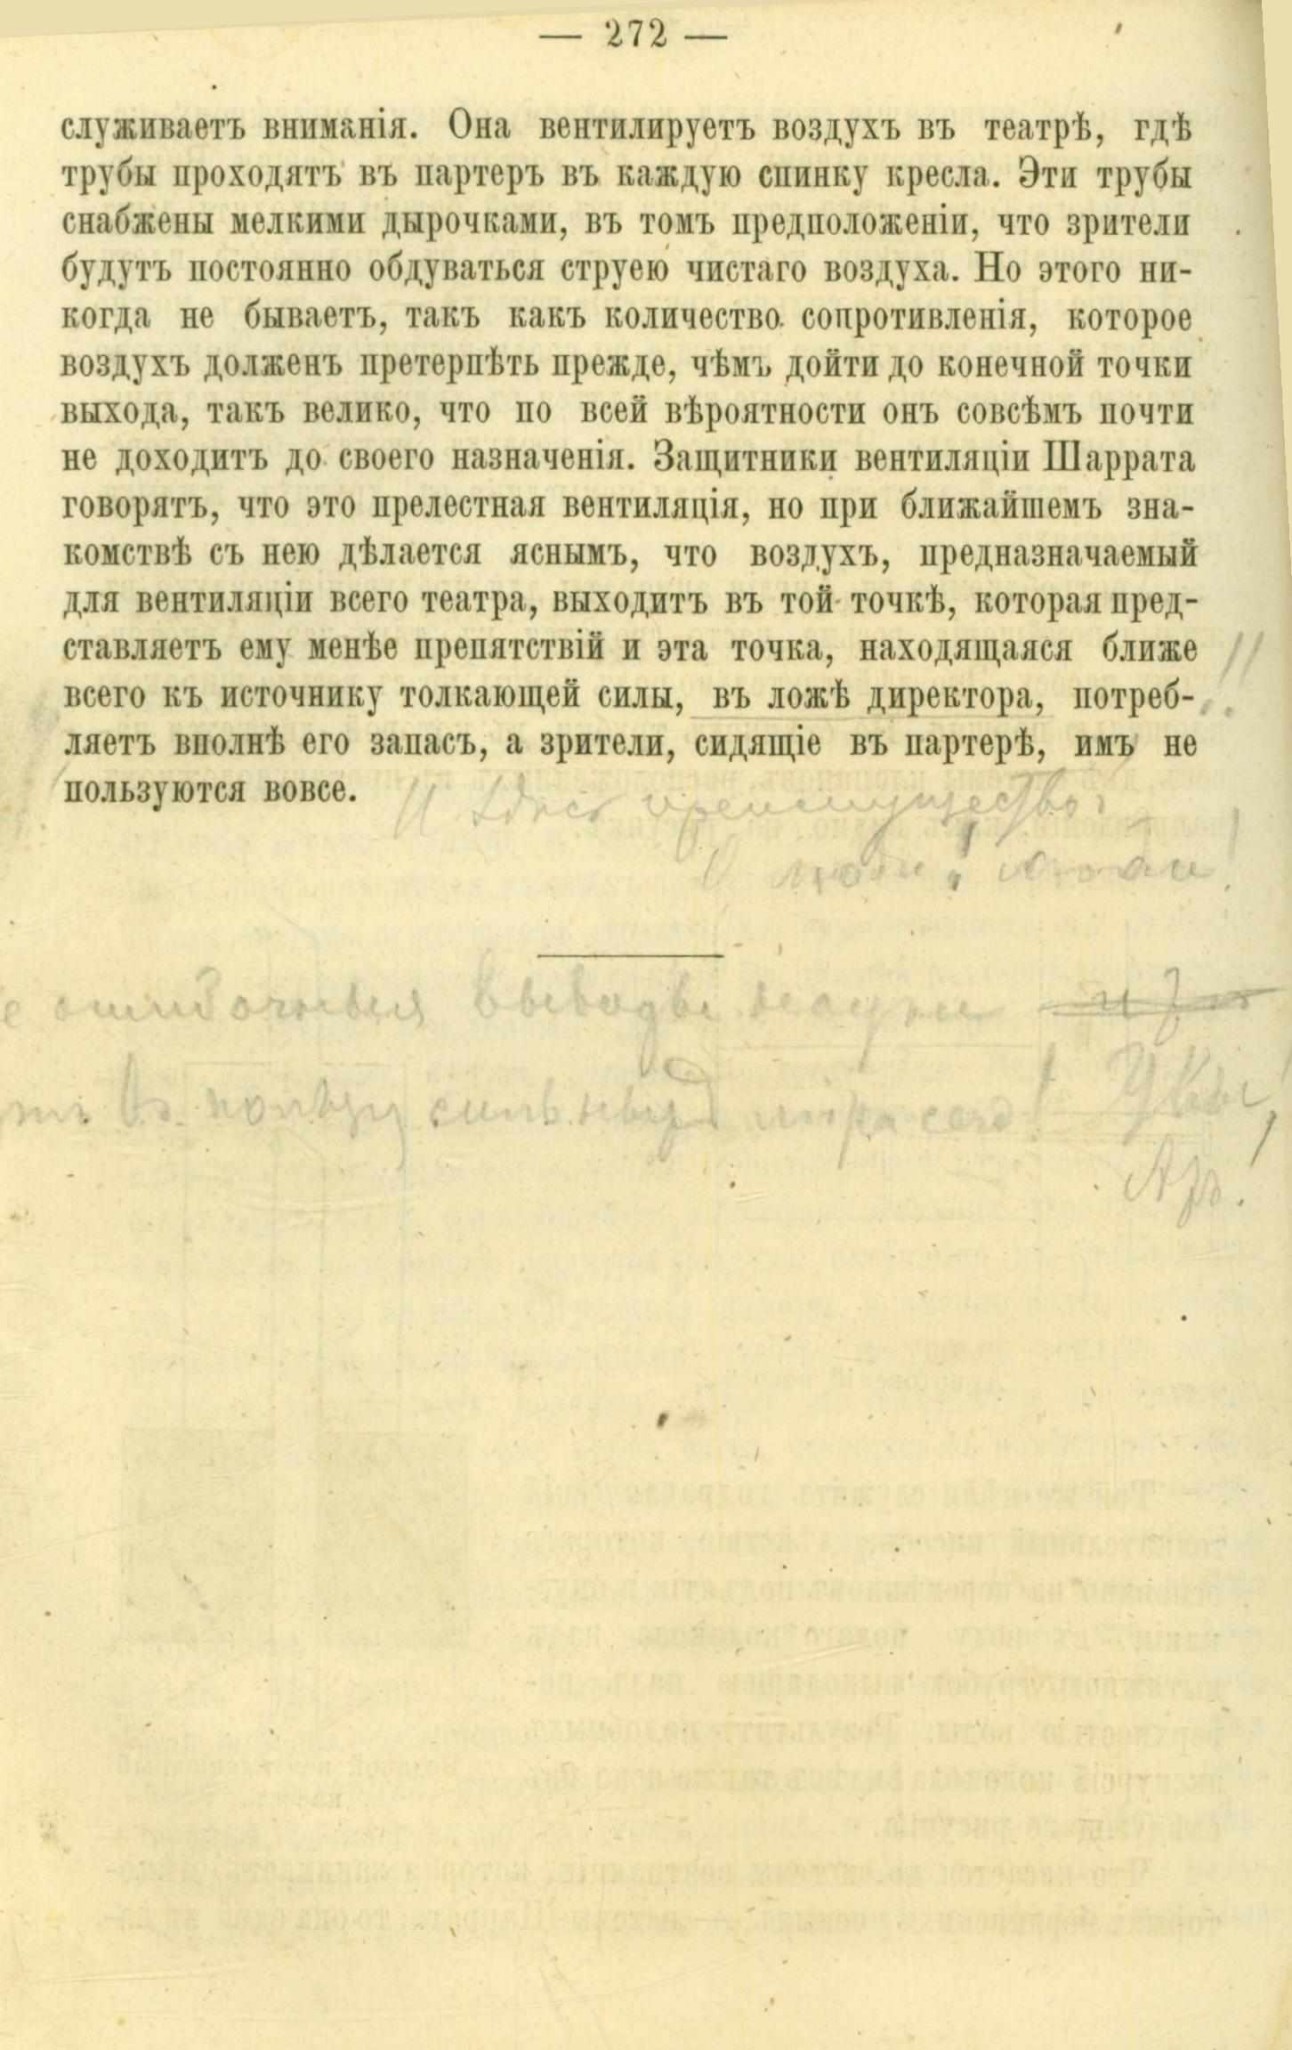 — 272 —
служиваетъ вниманія. Она вентилируетъ воздухъ въ театрѣ, гдѣ
трубы проходятъ въ партеръ въ каждую спинку кресла. Эти трубы
снабжены мелкими дырочками, въ томъ предположеніи, что зрители
будутъ постоянно обдуваться струею чистаго воздуха. Но этого ни-
когда не бываетъ, такъ какъ количество сопротивленія, которое
воздухъ долженъ претерпѣть прежде, чѣмъ дойти до конечной точки
выхода, такъ велико, что по всей вѣроятности онъ совсѣмъ почти
не доходитъ до своего назначенія. Защитники вентиляціи Шаррата
говорятъ, что это прелестная вентиляція, но при ближайшемъ зна-
комствѣ съ нею дѣлается яснымъ, что воздухъ, предназначаемый
для вентиляціи всего театра, выходитъ въ той точкѣ, которая пред-
ставляетъ ему менѣе препятствій и эта точка, находящаяся ближе
всего къ источнику толкающей силы, въ ложѣ директора, потреб- !!
ляетъ вполнѣ его запасъ, а зрители, сидящіе въ партерѣ, имъ не
пользуются вовсе.
И здесь преимущество!
О люди! люди!
ошибочные выводы науки
въ пользу сильныхъ міра сего! Увы!